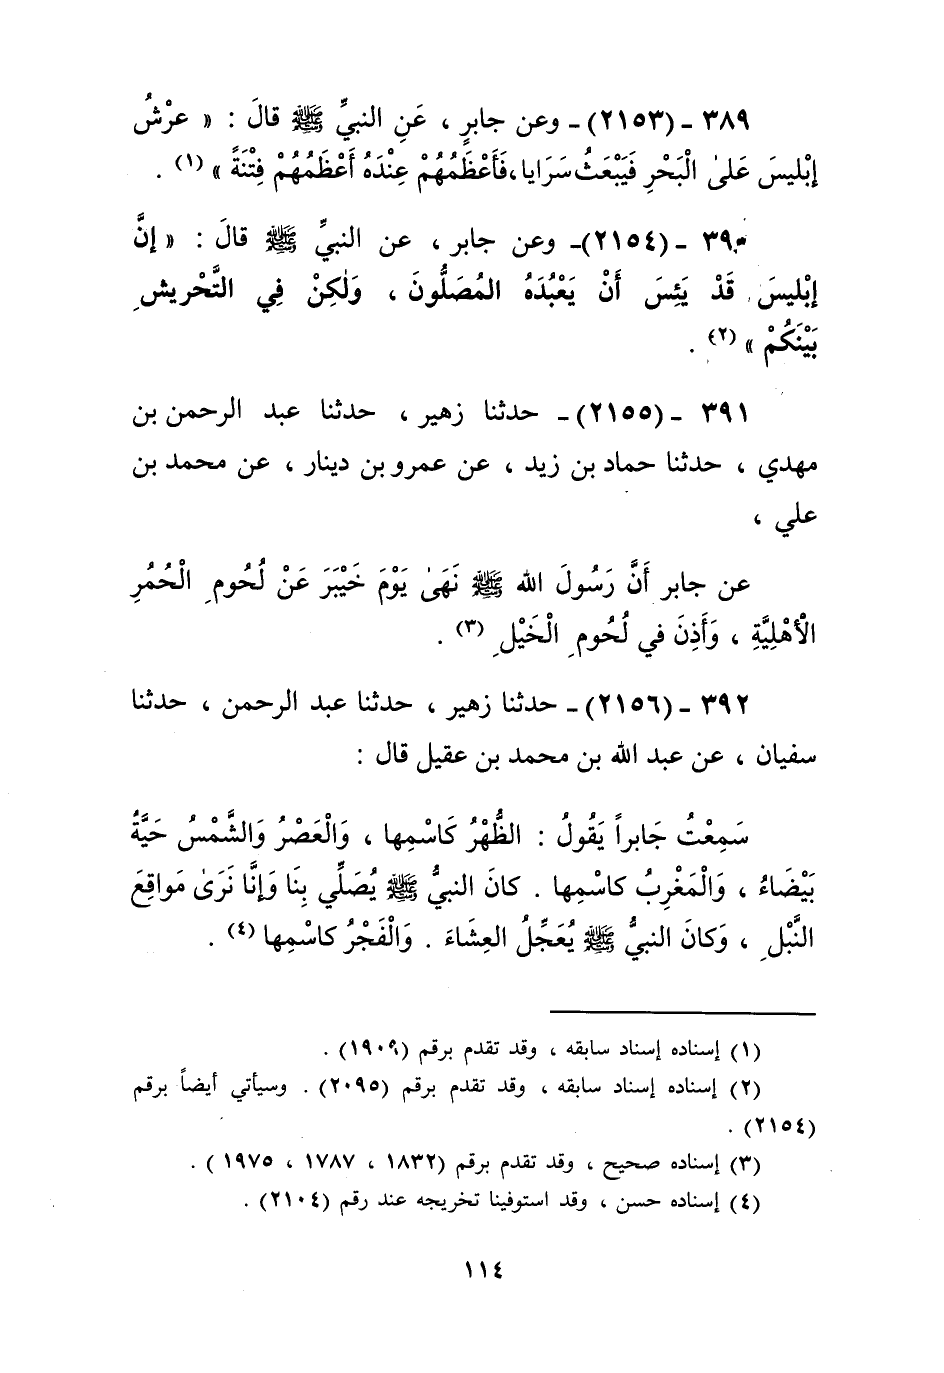 ٣٨٩ - (٢١٥٣) - وعن جابرٍ ، عَنِ النبيِّ ﷺ قالَ : « عرْشُ
إبْليسَ عَلىٰ الْبَحْرِ فَيَبْعَثُ سَرَايا، فَأَعْظَمُهُمْ عِنْدَهُ أَعْظَمُهُمْ فِتْنَةً » (١) .
٣٩٠ - (٢١٥٤) - وعن جابر ، عن النبيِّ ﷺ قالَ : « إنَّ
إبْليسَ قَدْ يَئِسَ أَنْ يَعْبُدَهُ المُصَلُّونَ ، وَلٰكِنْ فِي التَّحْريشِ
بَيْنَكُمْ » (٢) .
٣٩١ - (٢١٥٥) - حدثنا زهير ، حدثنا عبد الرحمن بن
مهدي ، حدثنا حماد بن زيد ، عن عمرو بن دينار ، عن محمد بن
علي ،
عن جابر أَنَّ رَسُولَ الله ﷺ نَهَىٰ يَوْمَ خَيْبَرَ عَنْ لُحُومِ الْحُمُرِ
الْأَهْلِيَّةِ ، وَأَذِنَ في لُحُومِ الْخَيْلِ (٣) .
٣٩٢ - (٢١٥٦) - حدثنا زهير ، حدثنا عبد الرحمن ، حدثنا
سفيان ، عن عبد الله بن محمد بن عقيل قال :
سَمِعْتُ جَابراً يَقُولُ : الظُّهْرُ كَاسْمِها ، وَالْعَصْرُ وَالشَّمْسُ حَيَّةٌ
بَيْضَاءُ ، وَالْمَغْرِبُ كاسْمِها . كانَ النبيُّ ﷺ يُصَلِّي بِنَا وَإنَّا نَرَىٰ مَواقِعَ
النَّبْلِ ، وَكانَ النبيُّ ﷺ يُعَجِّلُ العِشَاءَ . وَالْفَجْرُ كاسْمِها (٤) .
(١) إسناده إسناد سابقه ، وقد تقدم برقم (١٩٠٩) .
(٢) إسناده إسناد سابقه ، وقد تقدم برقم (٢٠٩٥) . وسيأتي أيضاً برقم
(٢١٥٤) .
(٣) إسناده صحيح ، وقد تقدم برقم (١٨٣٢ ، ١٧٨٧ ، ١٩٧٥ ) .
(٤) إسناده حسن ، وقد استوفينا تخريجه عند رقم (٢١٠٤) .
١١٤